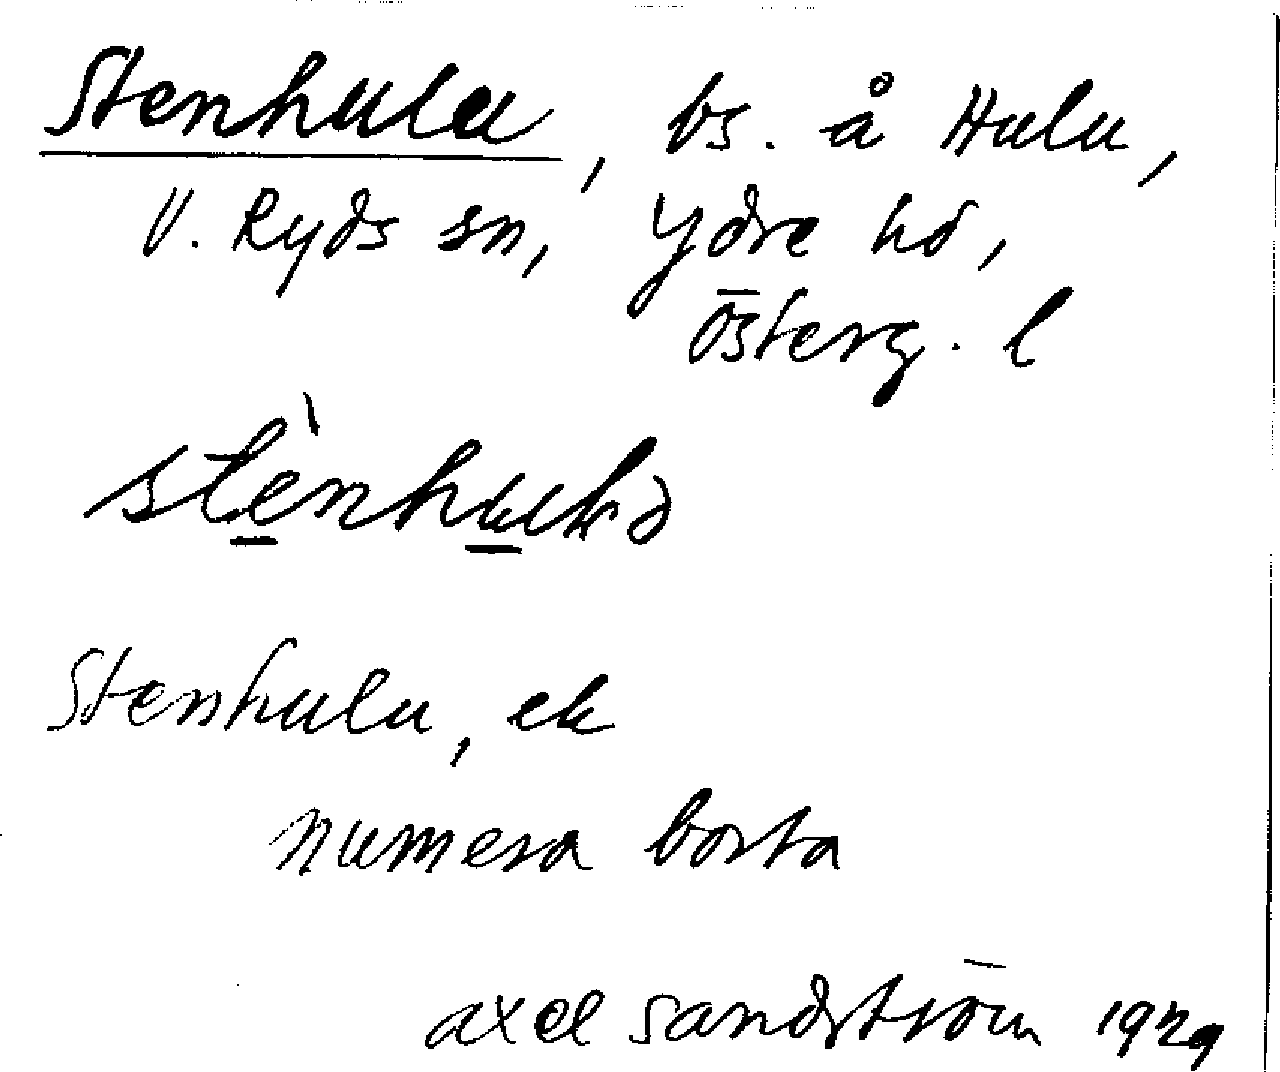 Stenhulu, bs. å Hulu,
V. Ryds sn, Ydre hd,
Österg. l
Stenhulu, ek
numera borta
Axel Sandström 1929